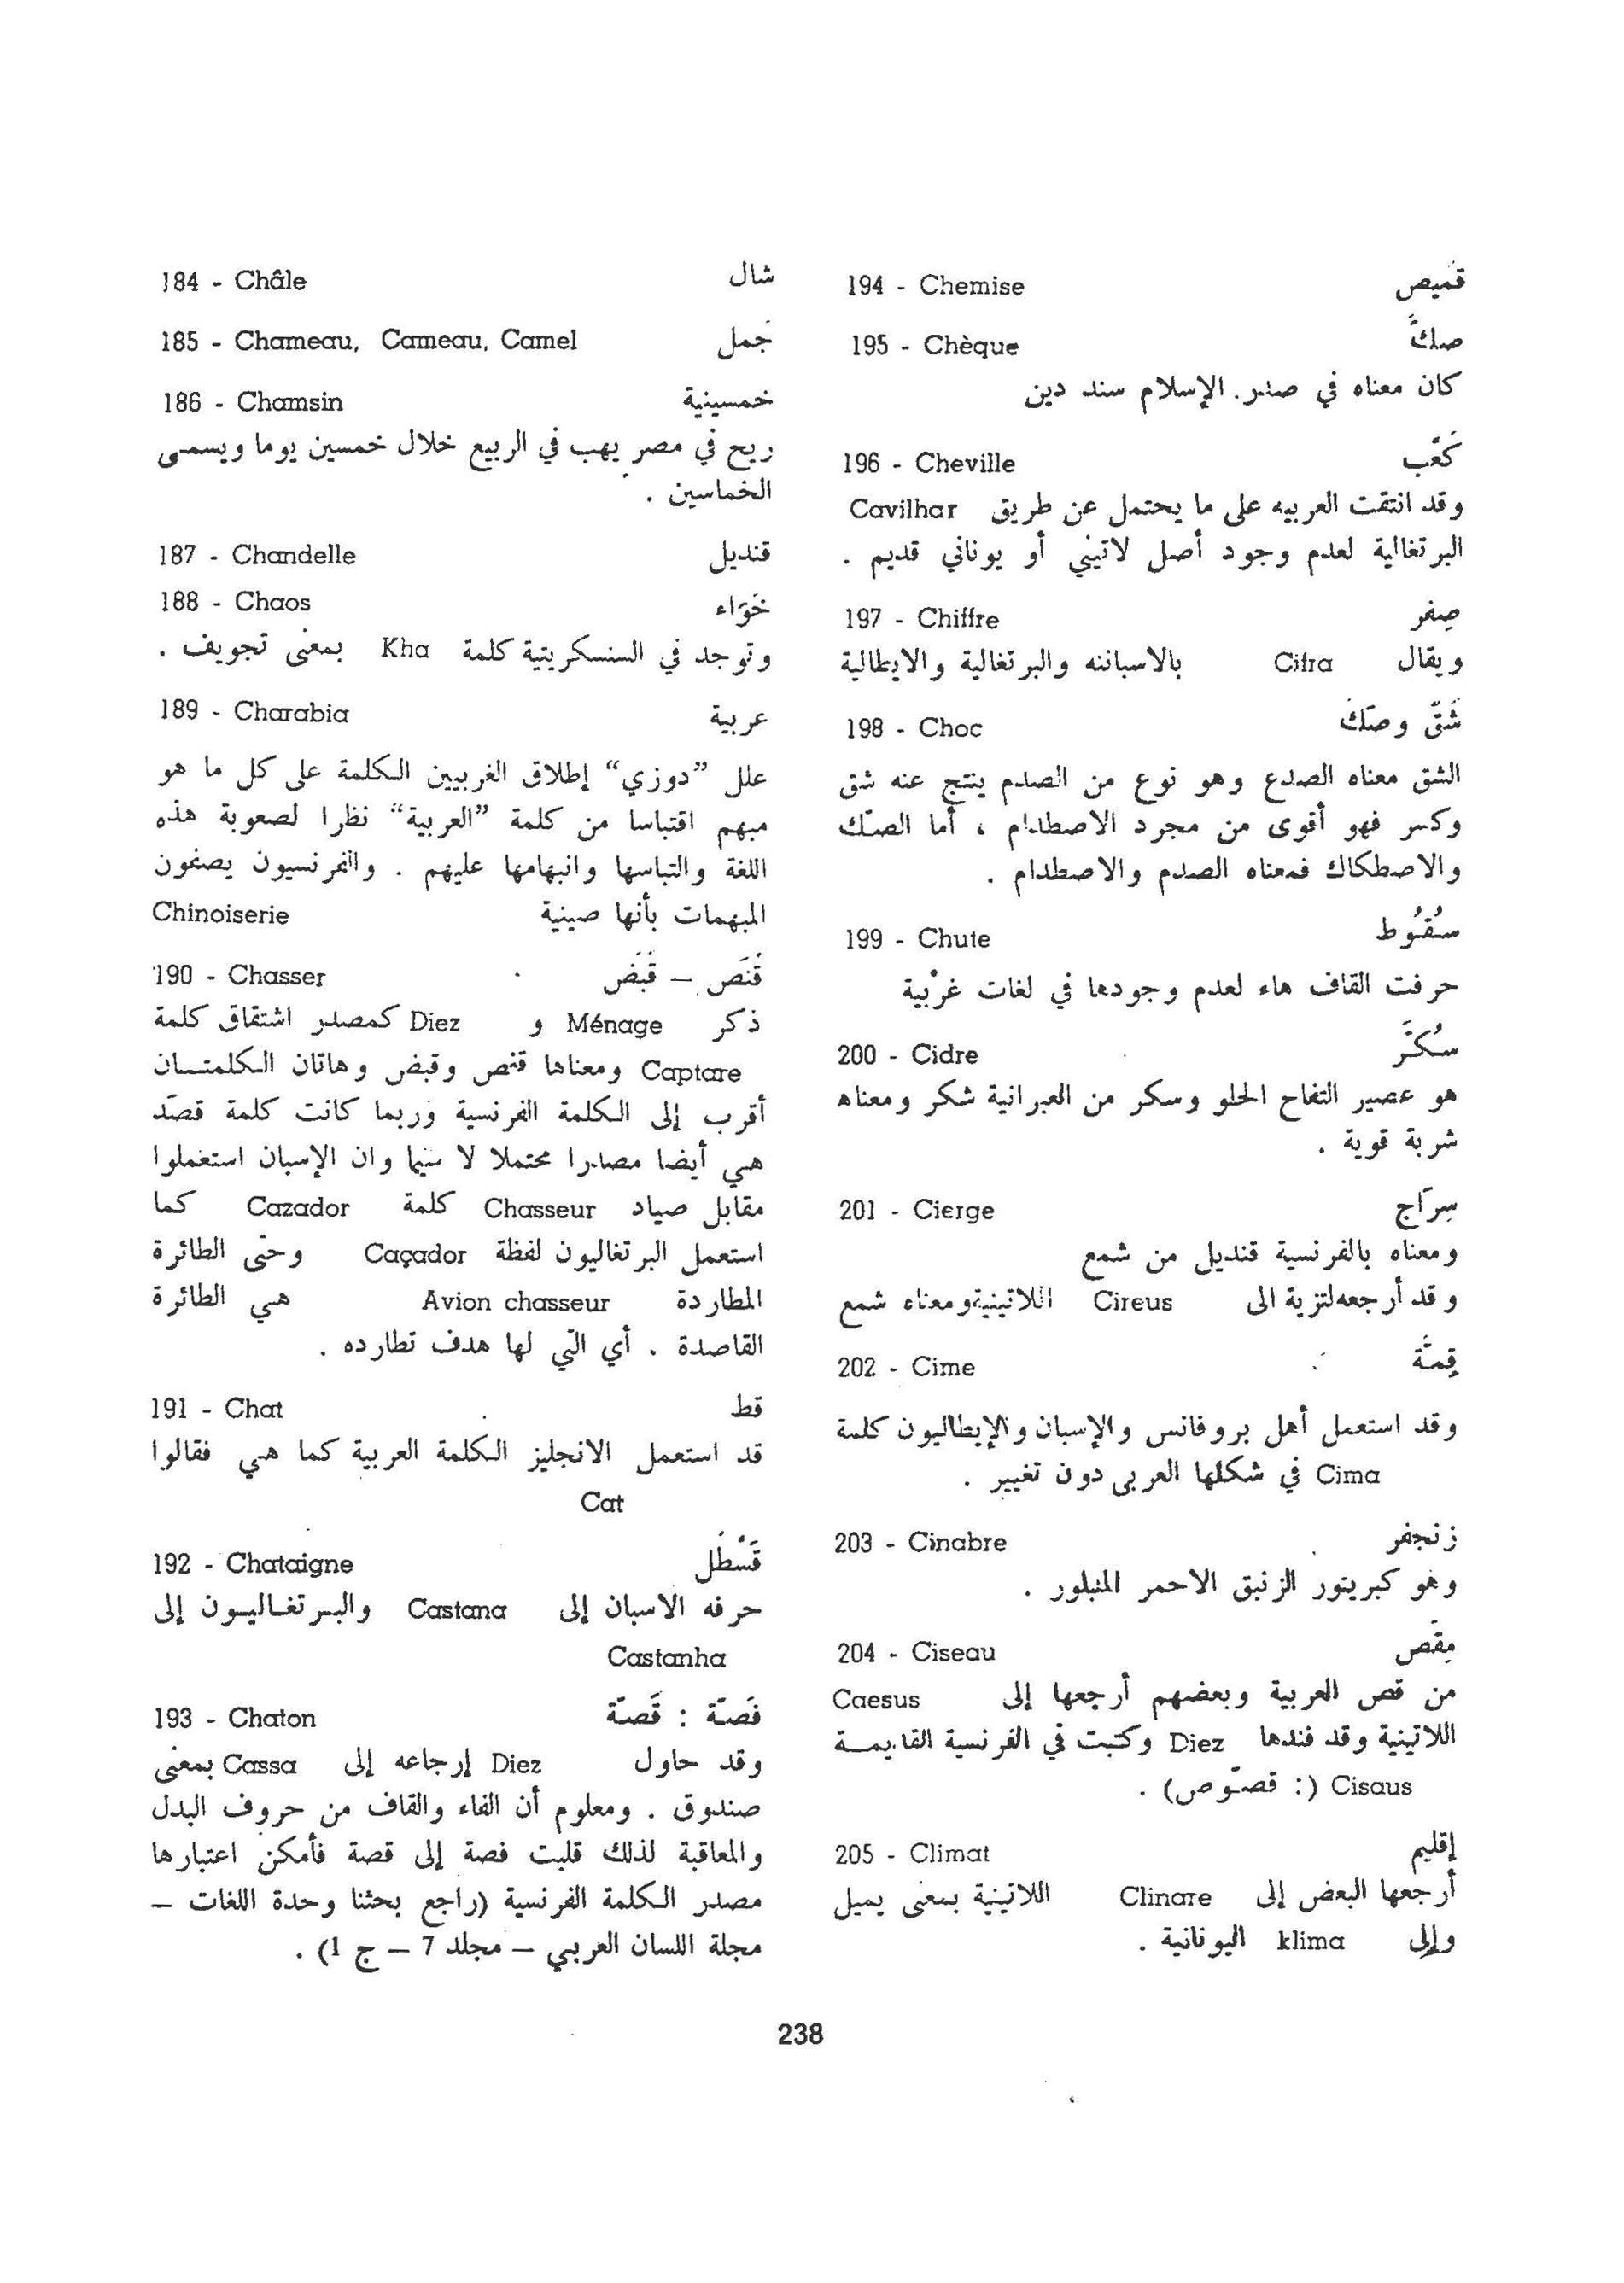 184 - Châle شال
185 - Chameau, Cameau, Camel جَمل
186 - Chamsin خمسينية
ريح في مصر يهب في الربيع خلال خمسين يوما ويسمى
الخماسين .
187 - Chandelle قنديل
188 - Chaos خَوَاء
وتوجد في السنسكريتية كلمة Kha بمعنى تجويف .
189 - Charabia عربية
علل ”دوزي“ إطلاق الغربيين الكلمة على كل ما هو
مبهم اقتباسا من كلمة ”العربية“ نظرا لصعوبة هذه
اللغة والتباسها وانبهامها عليهم . والفرنسيون يصفون
المبهمات بأنها صينية Chinoiserie
190 - Chasser قَنَص – قَبَض
ذكر Ménage و Diez كمصدر اشتقاق كلمة
Captare ومعناها قنص وقبض وهاتان الكلمتــان
أقرب إلى الكلمة الفرنسية وربما كانت كلمة قصَد
هي أيضا مصدرا محتملا لا سيما وان الإسبان استعملوا
مقابل صياد Chasseur كلمة Cazador كما
استعمل البرتغاليون لفظة Caçador وحتى الطائرة
المطاردة Avion chasseur هي الطائرة
القاصدة . أي التي لها هدف تطارده .
191 - Chat قط
قد استعمل الانجليز الكلمة العربية كما هي فقالوا
Cat
192 - Chataigne قَسْطَل
حرفه الاسبان إلى Castana والبـرتغـاليـون إلى
Castanha
193 - Chaton فَصّة : قَصّة
وقد حاول Diez إرجاعه إلى Cassa بمعنى
صندوق . ومعلوم أن الفاء والقاف من حروف البدل
والمعاقبة لذلك قلبت فصة إلى قصة فأمكن اعتبارها
مصدر الكلمة الفرنسية (راجع بحثنا وحدة اللغات –
مجلة اللسان العربي – مجلد 7 – ج 1) .
194 - Chemise قَميص
195 - Chèque صكّ
كان معناه في صدر الإسلام سند دين
196 - Cheville كَعْب
وقد انتقت العربيه على ما يحتمل عن طريق Cavilhar
البرتغالية لعدم وجود أصل لاتيني أو يوناني قديم .
197 - Chiffre صِفر
ويقال Cifra بالاسباننه والبرتغالية والايطالية
198 - Choc شَقّ وصَكّ
الشق معناه الصدع وهو نوع من الصدم ينتج عنه شق
وكسر فهو أقوى من مجرد الاصطدام ، أما الصّك
والاصطكاك فمعناه الصدم والاصطدام .
199 - Chute سُقُوط
حرفت القاف هاء لعدم وجودها في لغات غرْبية
200 - Cidre سُكَّر
هو عصير التفاح الحلو وسكر من العبرانية شكر ومعناه
شربة قوية .
201 - Cierge سِرَاج
ومعناه بالفرنسية قنديل من شمع
وقد أرجعه لتزية الى Cireus اللاتينية ومعناه شمع
202 - Cime قِمّة
وقد استعمل أهل بروفانس والإسبان والإيطاليون كلمة
Cima في شكلها العربى دون تغيير .
203 - Cinabre زنجفر
وهو كبريتور الزئبق الاحمر المتبلور .
204 - Ciseau مِقَص
من قص العربية وبعضهم أرجعها إلى Caesus
اللاتينية وقد فندها Diez وكتبت في الفرنسية القديمــة
Cisaus (: قصّوص) .
205 - Climat إقليم
أرجعها البعض إلى Clinare اللاتينية بمعنى يميل
وإلى klima اليونانية .
238